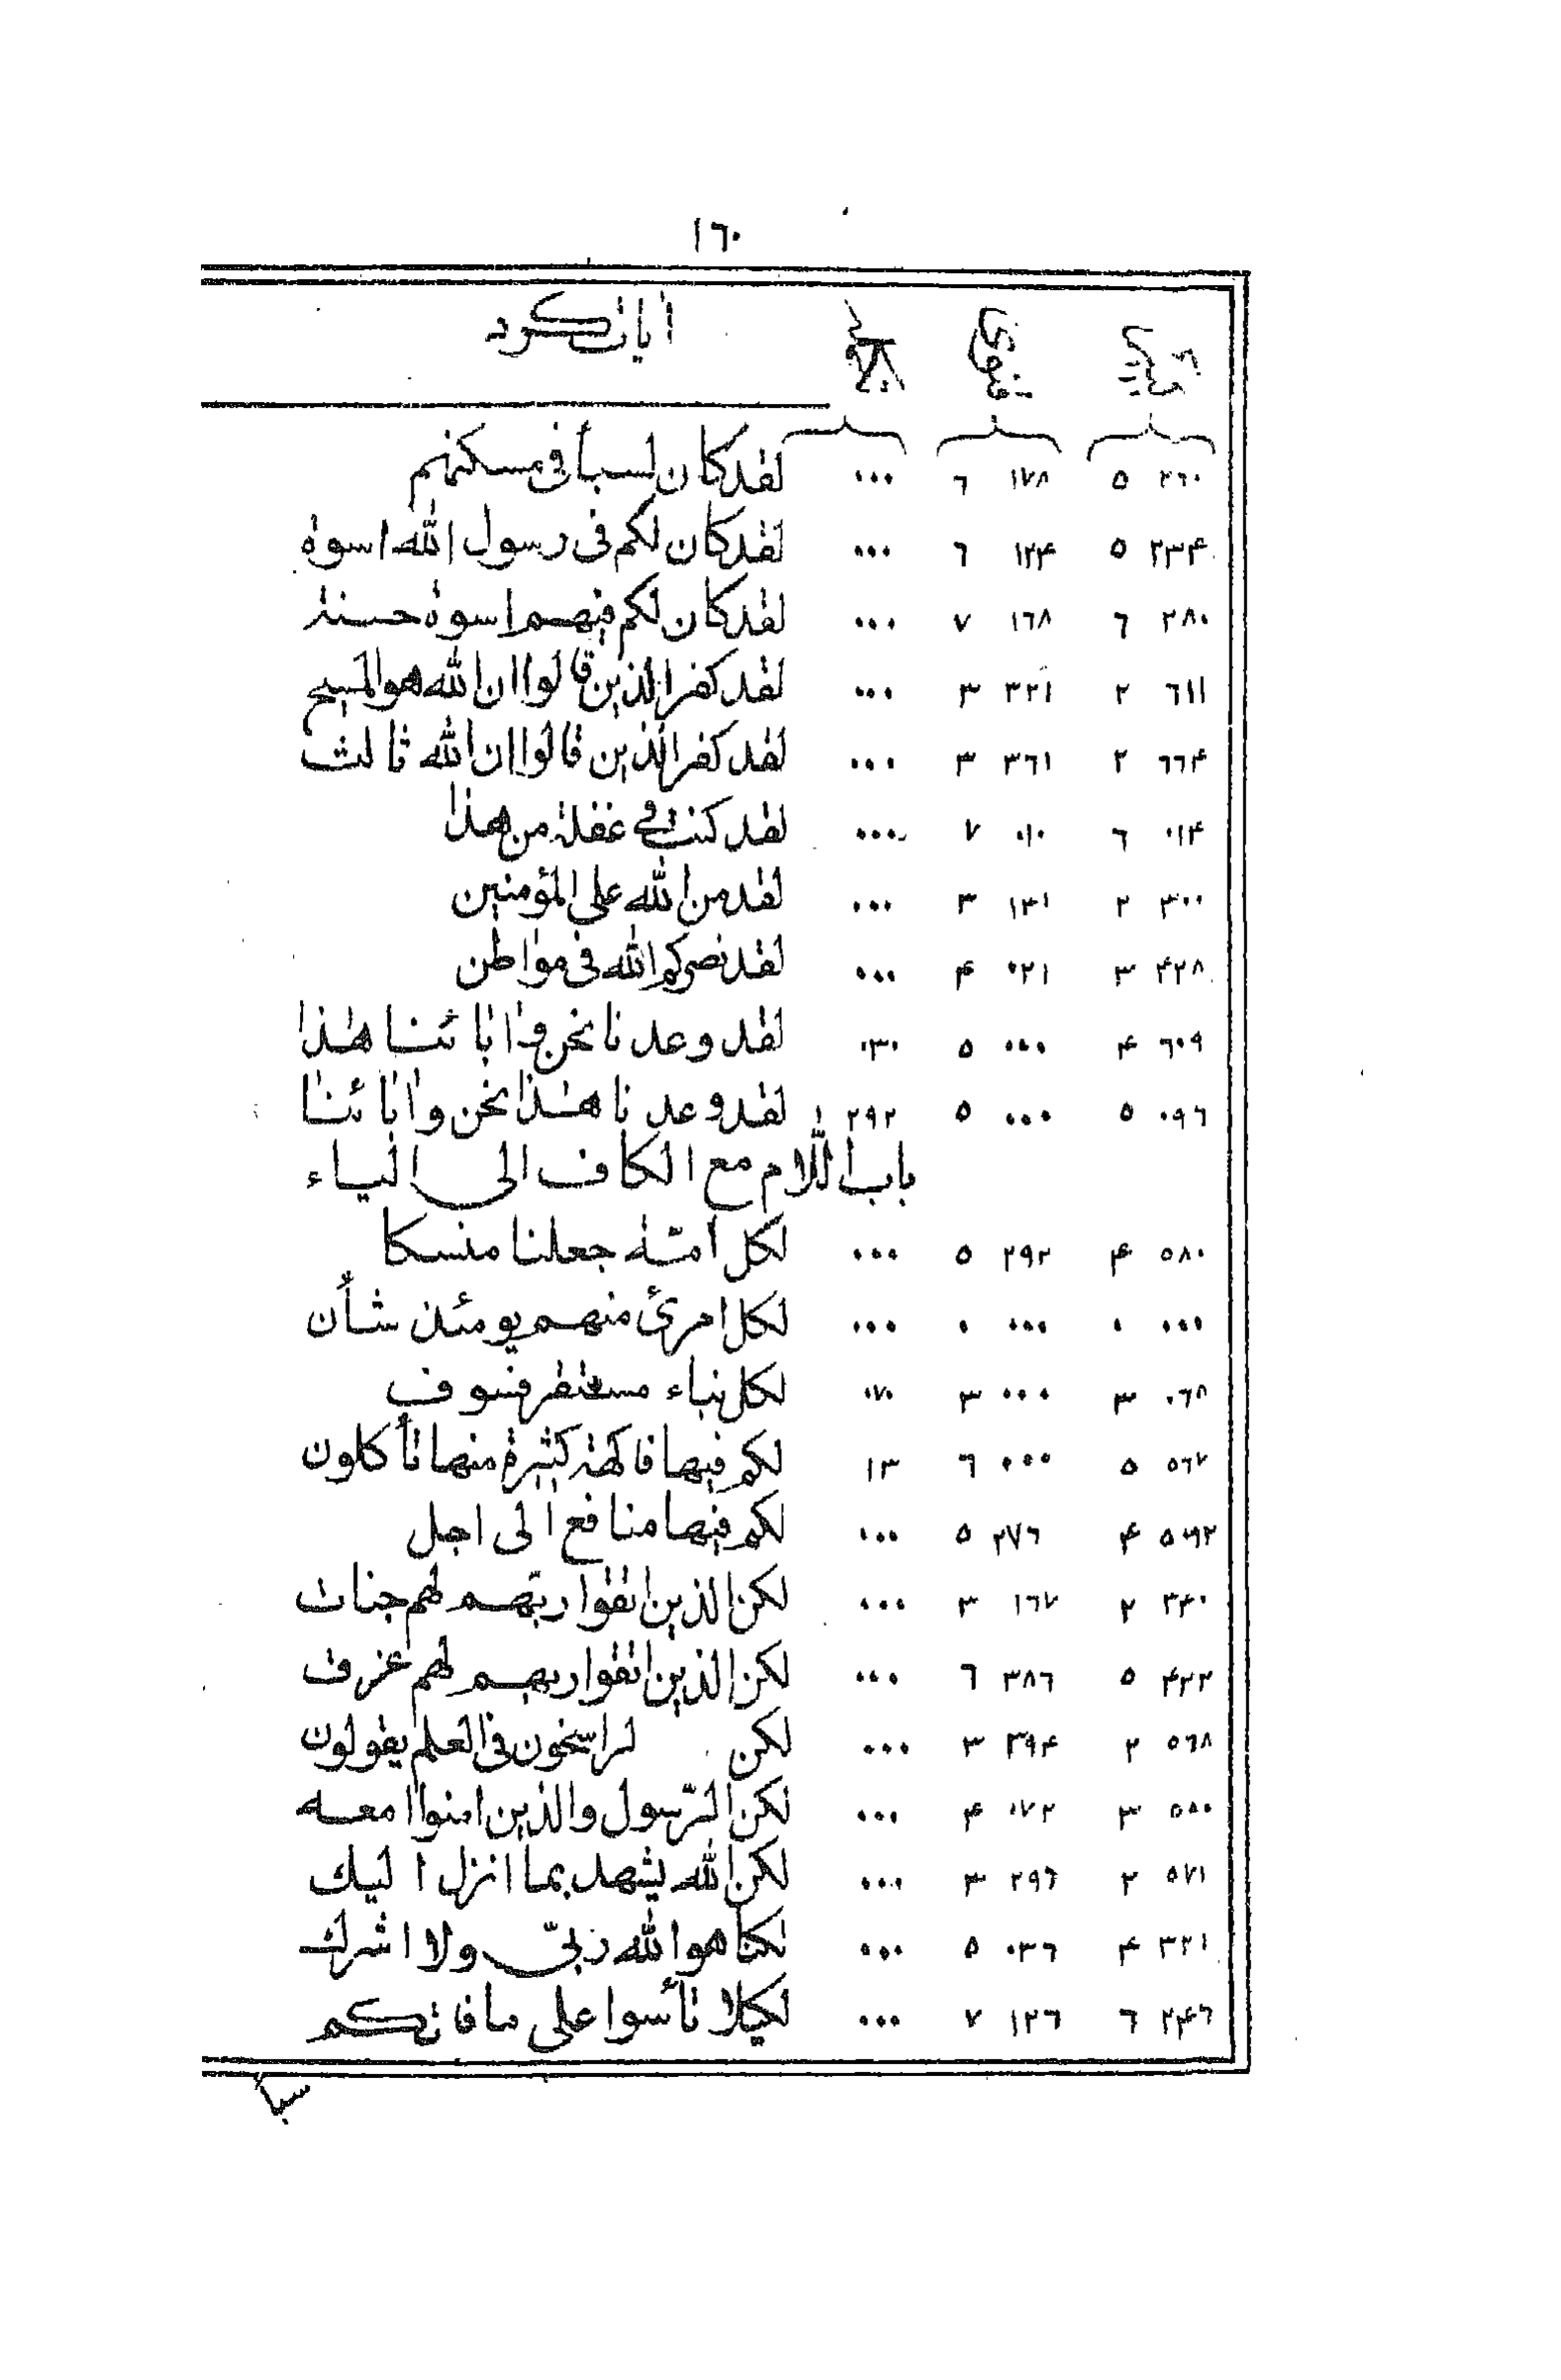 ١٦٠
ايات كرد
٢٦٠ ٥ ١٧٨ ٦ ... لقد كان لسبأ فى مسكنهم
٢٣۴ ٥ ١٢۴ ٦ ... لقد كان لكم فى رسول الله اسوة
٢٨٠ ٦ ١٦٨ ٧ ... لقد كان لكم فيهم اسوة حسنة
٦١١ ٢ ٣٢١ ٣ ... لقد كفر الذين قالوا ان الله هو المسيح
٦٦۴ ٢ ٣٦١ ٣ ... لقد كفر الذين قالوا ان الله ثالث
٠١۴ ٦ ٠١٠ ٧ ... لقد كنت فى غفلة من هذا
٣٠٠ ٢ ١٣١ ٣ ... لقد من الله على المؤمنين
۴٢٨ ٣ ٠٢١ ۴ ... لقد نصركم الله فى مواطن
٦٠٩ ۴ ... ٥ ٠٣٠ لقد وعدنا نحن وابائنا هذا
٠٩٦ ٥ ... ٥ ٢٩٢ لقد وعدنا هذا نحن وابائنا
باب اللام مع الكاف الى الياء
٥٨٠ ۴ ٢٩٢ ٥ ... لكل امة جعلنا منسكا
... ٠ ... ٠ ... لكل امرئ منهم يومئذ شأن
٠٦٨ ٣ ... ٣ ٠٧٠ لكل نباء مستقر فسوف
٥٦٧ ٥ ... ٦ ١٣ لكم فيها فاكهة كثيرة منها تأكلون
٥٧٢ ۴ ٢٧٦ ٥ ... لكم فيها منافع الى اجل
٣۴٠ ٢ ١٦٧ ٣ ... لكن الذين اتقوا ربهم لهم جنات
۴٢٢ ٥ ٣٨٦ ٦ ... لكن الذين اتقوا ربهم لهم غرف
٥٦٨ ٢ ٢٩۴ ٣ ... لكن لراسخون فى العلم يقولون
٥٨٠ ٣ ٠٧٢ ۴ ... لكن الرّسول والذين امنوا معه
٥٧١ ٢ ٢٩٦ ٣ ... لكن الله يشهد بما انزل اليك
٣٢١ ۴ ٠٣٦ ٥ ... لكنا هو الله ربىّ ولا اشرك
٢۴٦ ٦ ١٢٦ ٧ ... لكيلا تأسوا على ما فاتكم